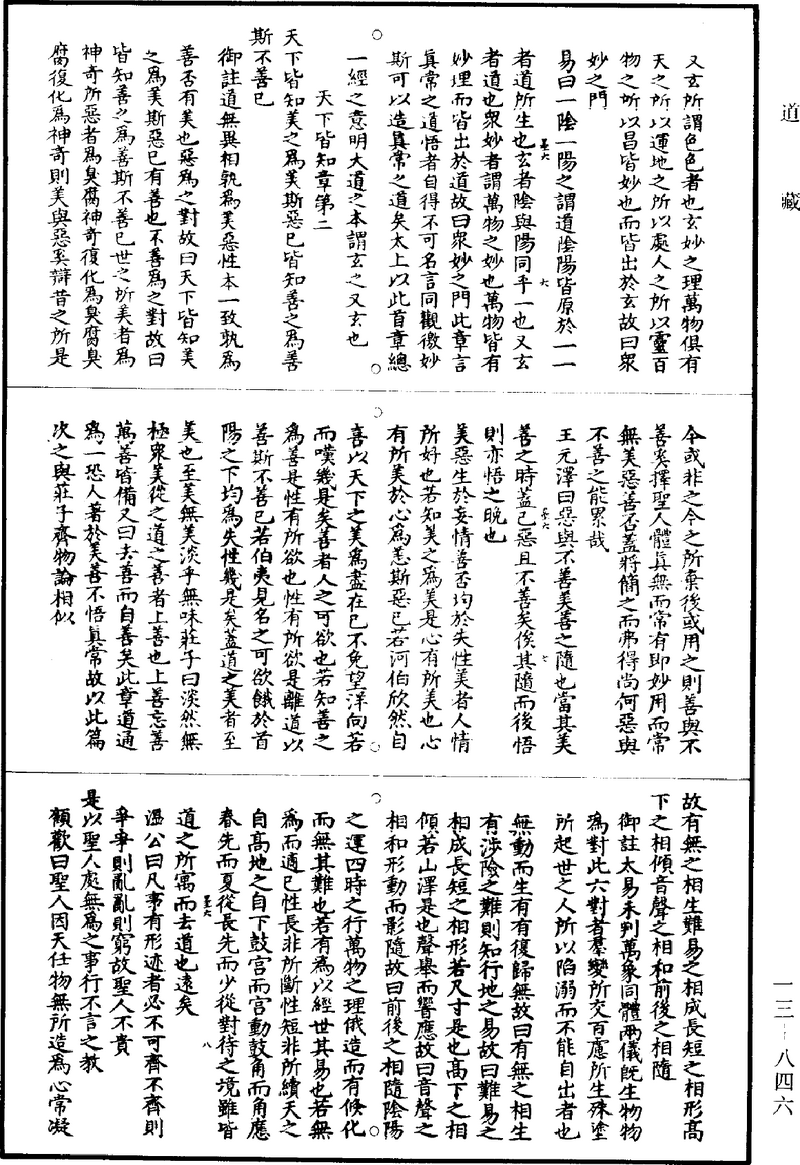 道藏
又玄所謂色色者也玄妙之理萬物俱有
天之所以運地之所以處人之所以靈百
物之所以昌皆妙也而皆出於玄故曰衆
妙之門
易曰一陰一陽之謂道陰陽皆原於一一
者道所生也玄者陰與陽同乎一也又玄
者道也衆妙者謂萬物之妙也萬物皆有
妙理而皆出於道故曰衆妙之門此章言
真常之道悟者自得不可名言同觀徼妙
斯可以造真常之道矣太上以此首章總
一經之意明大道之本謂玄之又玄也
天下皆知章第二
天下皆知美之為美斯惡已皆知善之為善
斯不善已
御註道無異相孰為美惡性本一致孰為
善否有美也惡為之對故曰天下皆知美
之為美斯惡已有善也不善為之對故曰
皆知善之為善斯不善已世之所美者為
神奇所惡者為臭腐神奇復化為臭腐臭
腐復化為神奇則美與惡奚辯昔之所是
今或非之今之所棄後或用之則善與不
善奚擇聖人體真無而常有即妙用而常
無美惡善否蓋將簡之而弗得尚何惡與
不善之能累哉
王元澤曰惡與不善美善之隨也當其美
善之時蓋已惡且不善矣俟其隨而後悟
則亦悟之晚也
美惡生於妄情善否均於失性美者人情
所好也若知美之為美是心有所美也心
有所美於心為恙斯惡已若河伯欣然自
喜以天下之美為盡在已不免望洋向若
而嘆幾是矣善者人之可欲也若知善之
為善是性有所欲也性有所欲是離道以
善斯不善已若伯夷見名之可欲餓於首
陽之下均為失性幾是矣蓋道之美者至
美也至美無美淡乎無味莊子曰淡然無
極衆美從之道之善者上善也上善忘善
萬善皆備又曰去善而自善矣此章道通
為一恐人著於美善不悟真常故以此篇
次之與莊子齊物論相似
故有無之相生難易之相成長短之相形高
下之相傾音聲之相和前後之相隨
御註太易未判萬象同體兩儀既生物物
為對此六對者羣變所交百慮所生殊塗
所起世之人所以陷溺而不能自出者也
無動而生有有復歸無故曰有無之相生
有涉險之難則知行地之易故曰難易之
相成長短之相形若尺寸是也高下之相
傾若山澤是也聲舉而響應故曰音聲之
相和形動而影隨故曰前後之相隨陰陽
之運四時之行萬物之理俄造而有倏化
而無其難也若有為以經世其易也若無
為而適已性長非所斷性短非所續天之
自高地之自下鼓宮而宮動鼓角而角應
春先而夏從長先而少從對待之境雖皆
道之所寓而去道也遠矣
溫公曰凡事有形迹者必不可齊不齊則
爭爭則亂亂則窮故聖人不貴
是以聖人處無為之事行不言之教
顧歡曰聖人因天任物無所造為心常凝
一三–八四六